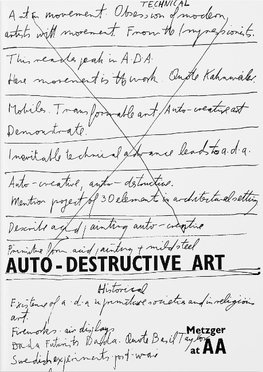 TECHNICAL
Art & movement. Obsession of modern
artists with movement From the Impressionists.
This reaches peak in A.D.A.
Here movement is the work. Quote Kahnweiler.
Mobiles. Transformable art. Auto-creative art
Demonstrate.
Inevitable technical advance leads to a.d.a.
Auto-creative, auto-destructive.
Mention project of 30 element in architectural setting
Describe acid painting auto-creative
Primitive form acid painting & mild steel
AUTO-DESTRUCTIVE ART
Historical
Existence of a-d-a in primitive societies and in religious
art.
Fireworks - air displays
Dada Futurists Dadda. Quote Basil Taylor
Swedish experiments post-war
Metzger
at AA